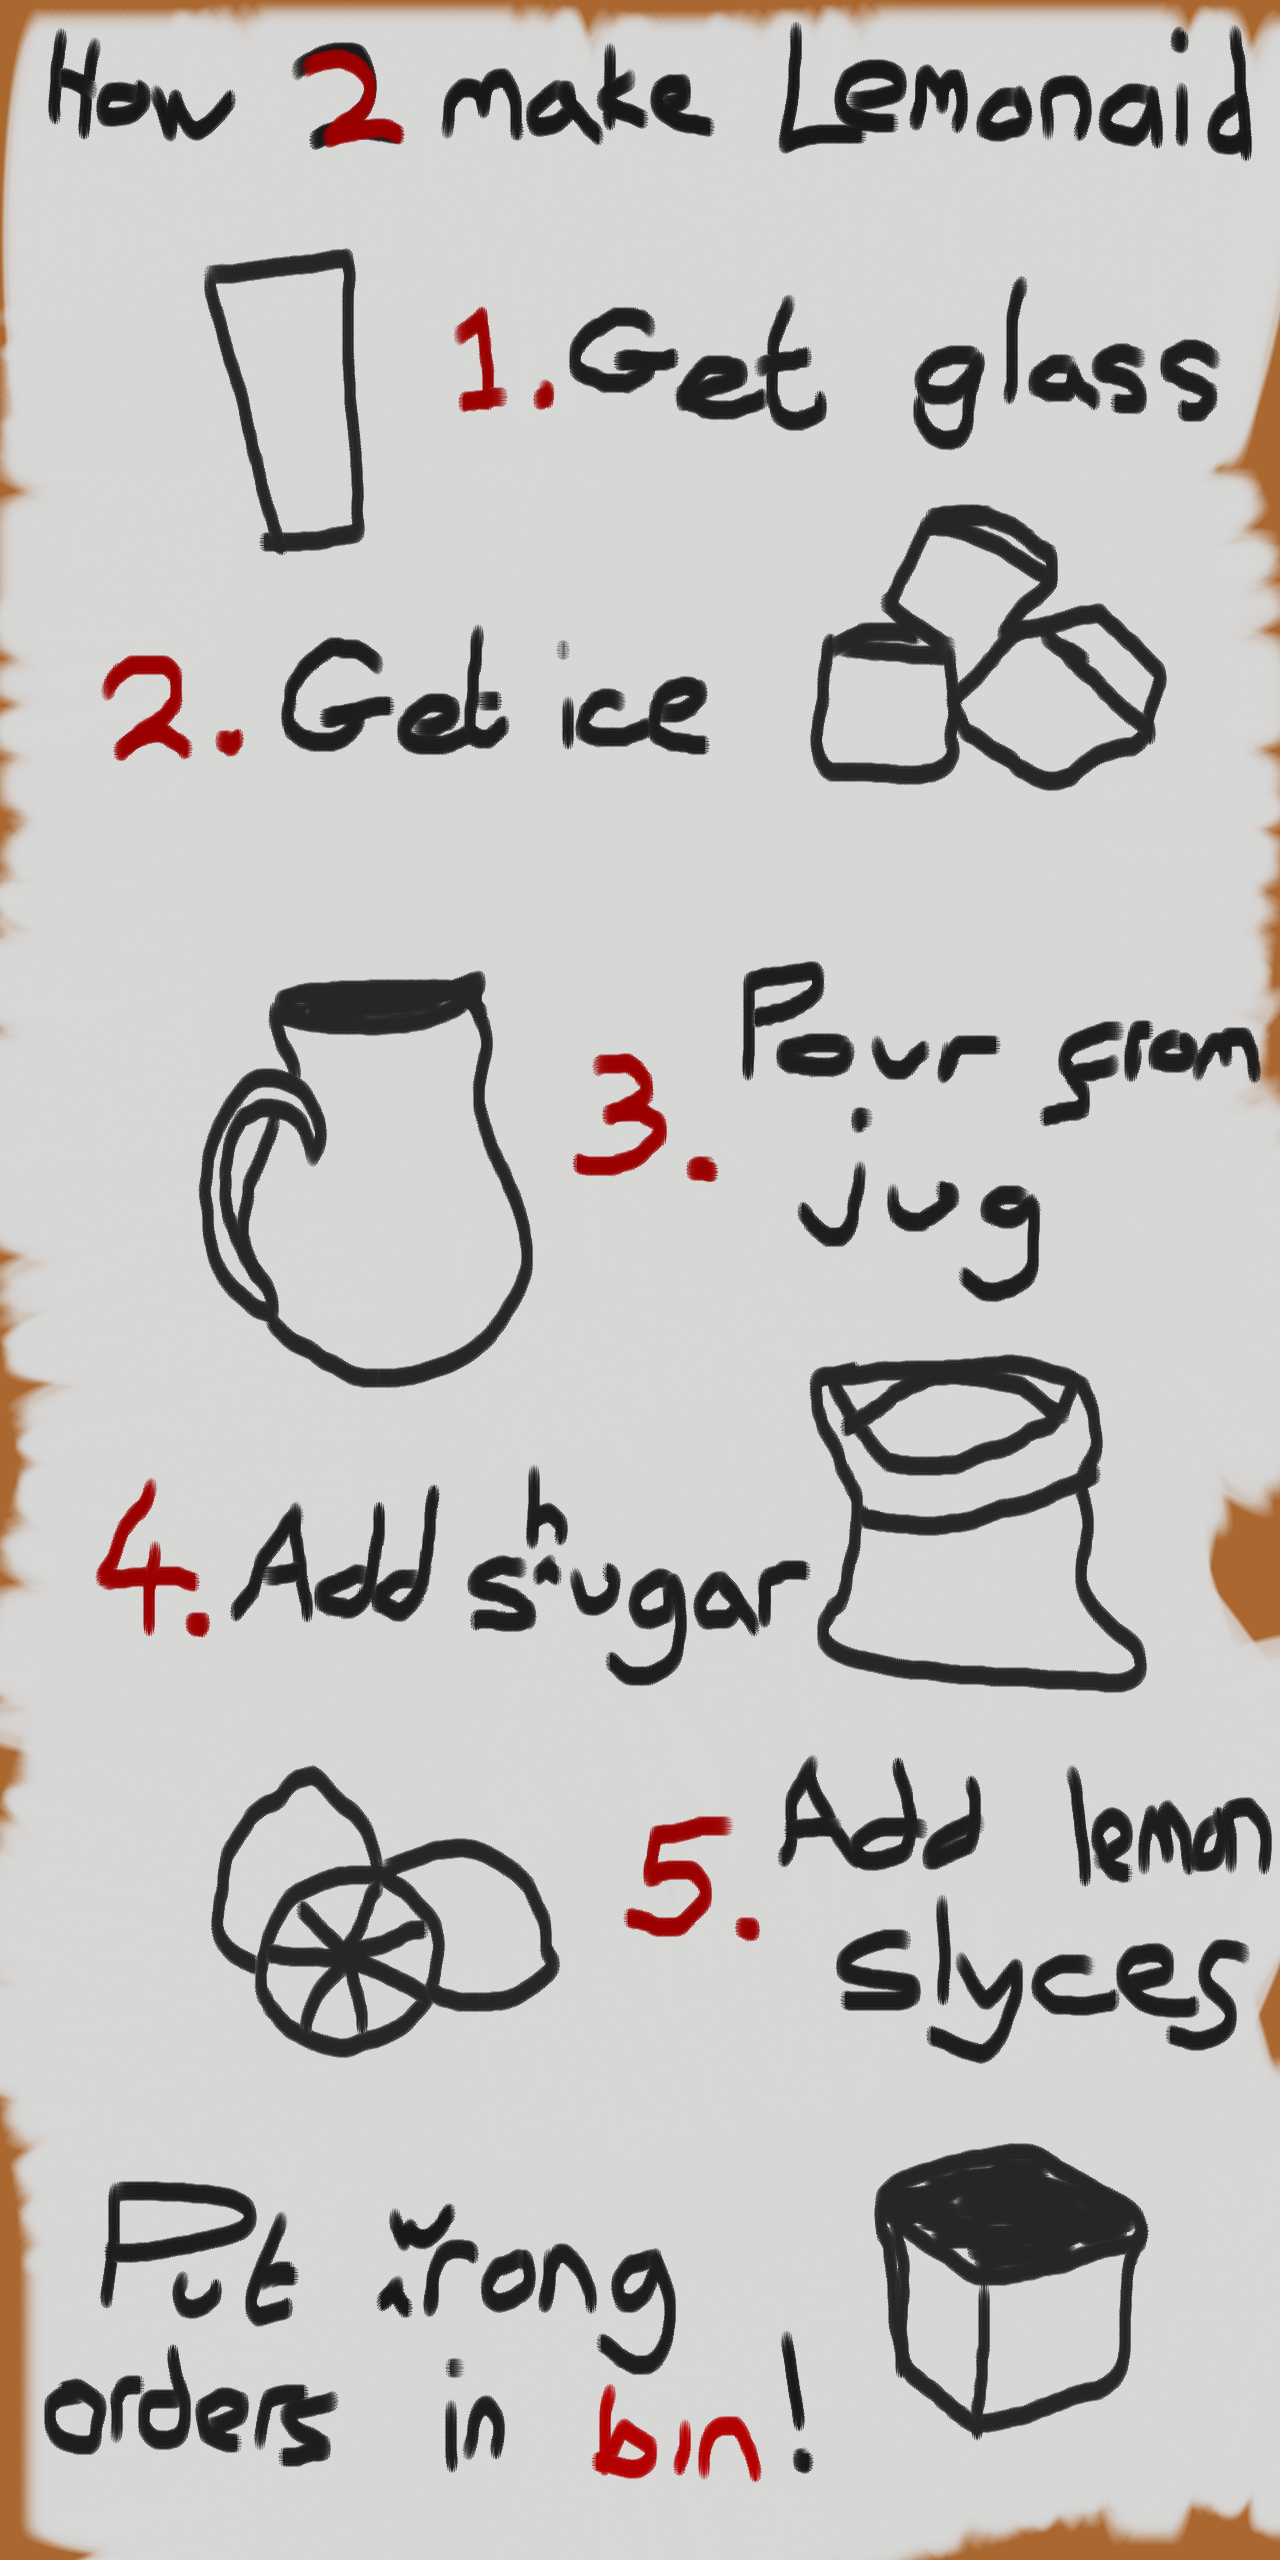 How 2 make Lemonaid
1. Get glass
2. Get ice
3. Pour from
jug
4. Add shugar
5. Add lemon
slyces
Put wrong
orders in bin!